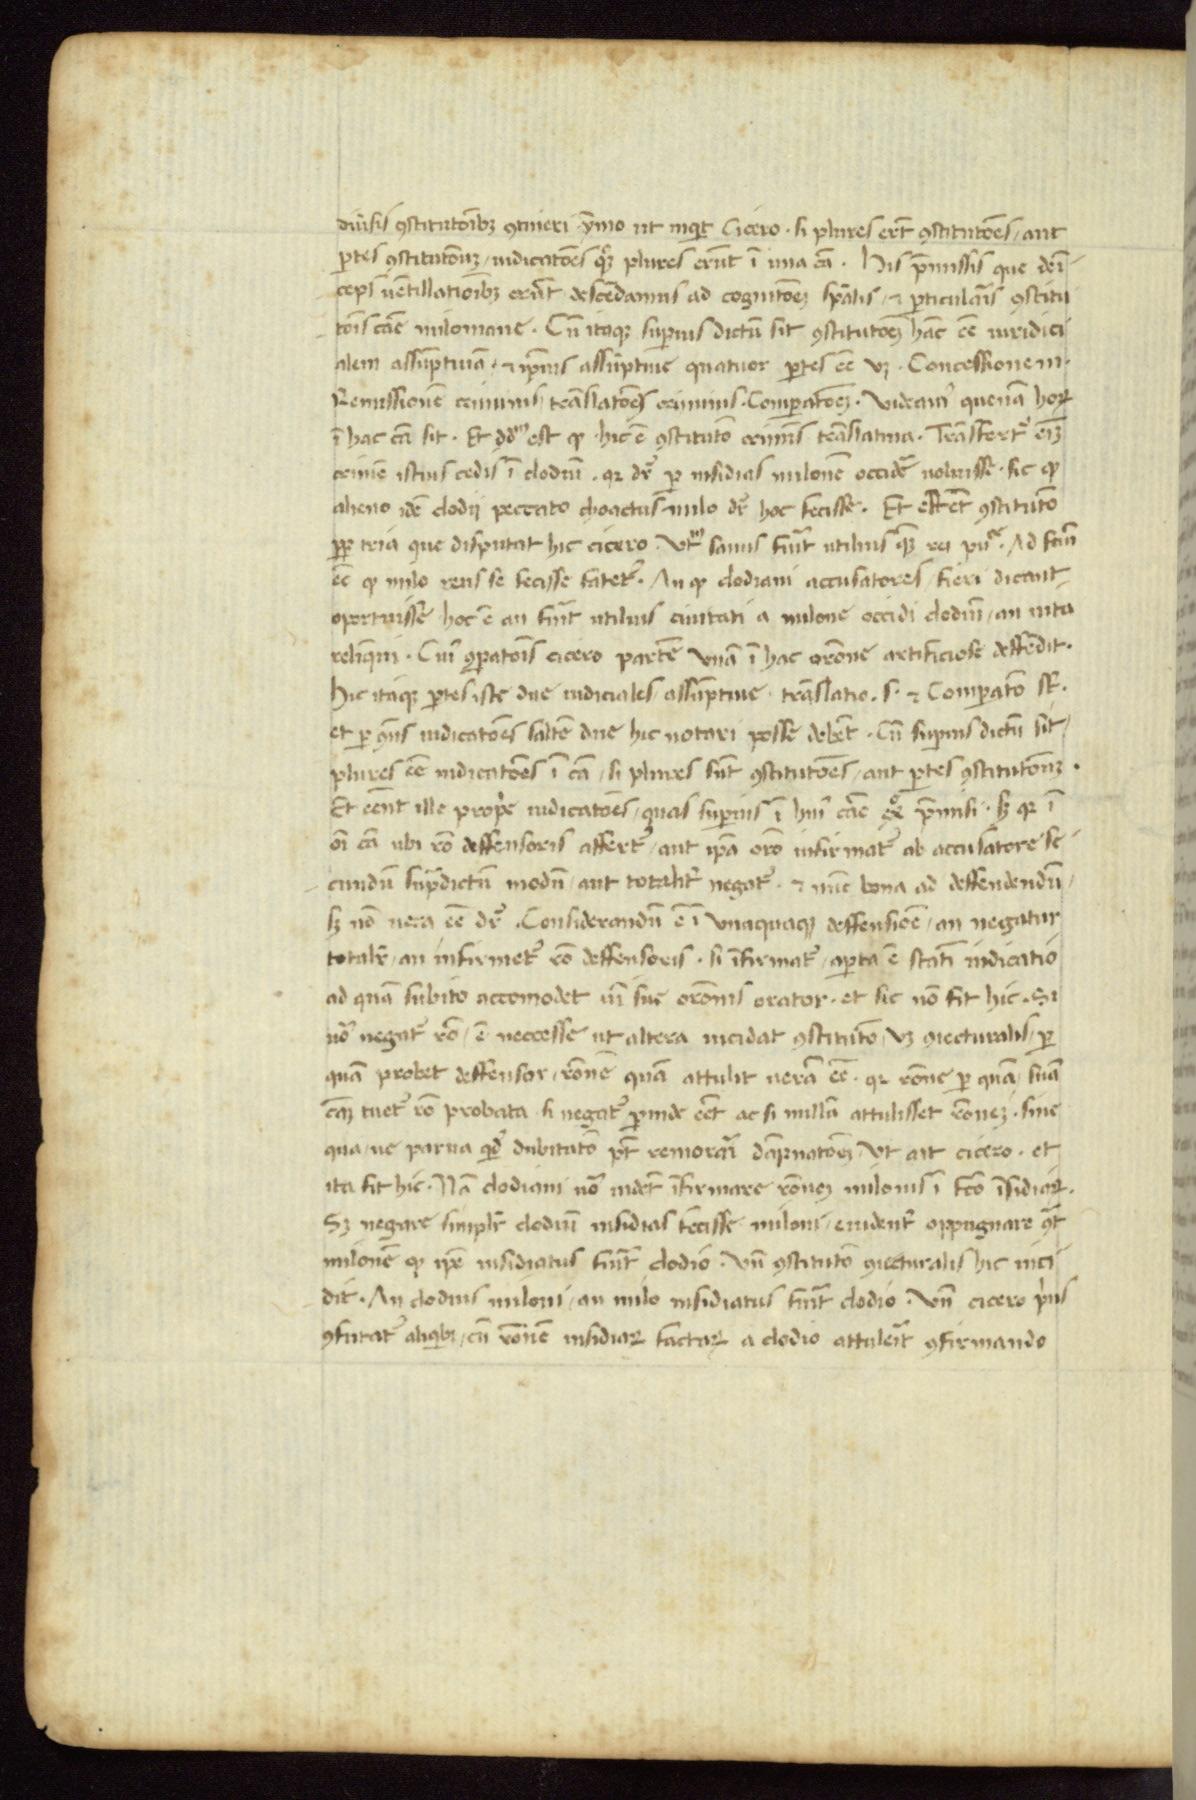 diuͥsis ꝯstitutōibꝫ ꝯtineri · ymo ut inqͥt Cicero · si plures erūt ꝯstitutōes / aut
ꝑtes ꝯstitutōnuꝫ / iudicatōes qꝫ plures erunt ī una cā . His p̄missis que dein̄
ceps uētillatioībꝫ erūt descēdamus ad cognitōeꝫ spālis / ⁊ ꝑticularis ꝯstitu
tōis cāe miloniane . Cū itaqꝫ suꝑius dictū sit ꝯstitutōeꝫ hāc eē iuridici
alem assūptiuā . ⁊ ip̄ius assūptiue quatuor ꝑtes eē vꝫ . Concessionem .
Remissionē criminis / trāslatōeꝫ criminis . Comꝑatōeꝫ . Videamꝰ quenā hoꝝ
ī hac cā sit . Et dd̄ est ꝙ hic ē ꝯstitutō criminis trāslatiua . Trāsfertᷣ eīꝫ
crimē istius cedis ī clodiū . qꝛ drᷣ ꝑ insidias milonē occidē uoluisse . sic ꝙ
alieno idē clodij peccato choactus milo drᷣ hoc fecisse . Et est ēt ꝯstitutō
ꝓpter tria que disputat hic cicero . Vtrum sanius fuͥt utilius
eē ꝙ milo reus se fecisse fatetᷣ . An ꝙ clodiani accusatores / fieri dicant
oportuisse / hoc ē an fuͥt utilius ciuitati a milone occidi clodiū / an uita
relinqui . Cuiꝰ ꝯꝑatōis cicero partē unā ī hac orōne artificiose deffēdit .
Hic itaqꝫ ꝑtes iste due iudiciales assūptiue . trāslatio . s . ⁊ Comꝑatō sūt .
et ꝑ ꝯn̄s iudicatōes saltē due hic notari posse debēt . Cū suꝑius dictū sit /
plures eē iudicatōes ī cā / si plures sūt ꝯstitutōes / aut ꝑtes ꝯstitutōnuꝫ .
Et eēnt ille propͥe iudicatōes / quas suꝑius ī huiꝰ cāe p̄misi . sꝫ qꝛ ī
oī cā ubi rō deffensoris affertᷣ / aut ip̄a orō infirmatᷣ ab accusatore se
cundū supͣdictū modū / aut totalitᷣ negatᷣ . ⁊ nūc bona ad deffendendū /
sꝫ nō uera eē drᷣ . Considerandū ē ī unaquaqꝫ deffensiōe / an negatur
totalrᷣ / an infirmetᷣ rō deffensoris . si īfirmatᷣ / aꝑta ē statī iudicatio
ad quā subito accomodet uī sue orōnis orator . et sic nō fit hic . Si
uͦ negatᷣ rō / ē necesse ut altera incidat ꝯstitutō / vꝫ ꝯiecturalis / ꝑ
quā probet deffensor / rōnē quā attulit uerā eē . qꝛ rōne ꝑ quā / suā
cāꝫ tuetᷣ rō probata . si negatᷣ ꝑinde eēt ac si nullā attulisset rōneꝫ . sine
qua / ne parua qͥdē dubitatō pōt remorari dāpnatōeꝫ / Vt ait cicero . et
ita fit hic . Nā clodiani nō uidēt īfirmare rōneꝫ milonis ī fcō īsidiaꝝ .
Sꝫ negare simplrᷣ clodiū insidias fecisse miloni / euidentᷣ oppugnare
milonē ꝙ ip̄e insidiatus fuͥt clodio . Vn̄ ꝯstitutō ꝯiecturalis hic inci
dit . An clodius miloni / an milo insidiatus fuͥt clodio . Vn̄ cicero pͥus
ꝯfutatᷣ aliqͥbꝫ / cū rōnē insidiaꝝ factaꝝ a clodio attuleīt ꝯfirmando